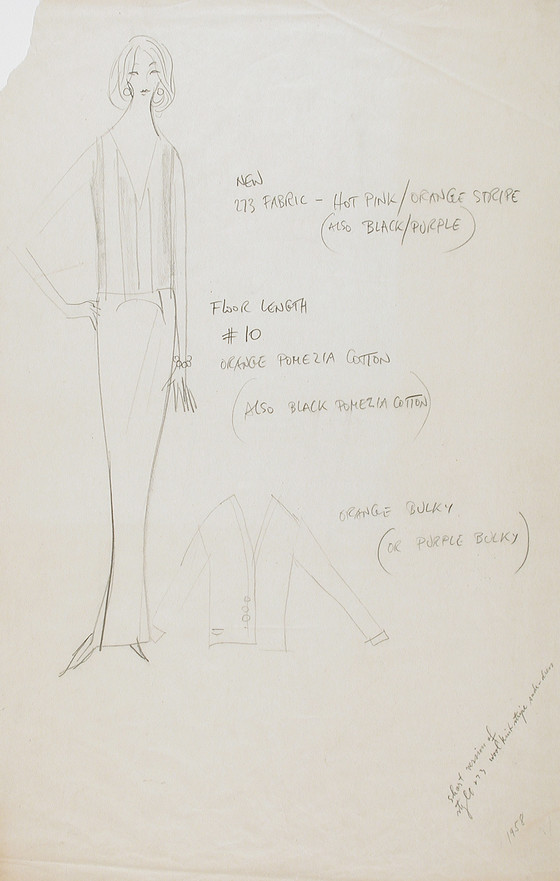 NEW
273 FABRIC – HOT PINK/ORANGE STRIPE
(ALSO BLACK/PURPLE)
FLOOR LENGTH
# 10
ORANGE POMEZIA COTTON
(ALSO BLACK POMEZIA COTTON)
ORANGE BULKY
(OR PURPLE BULKY)
short version of
style 273 wool knit stripe
1958